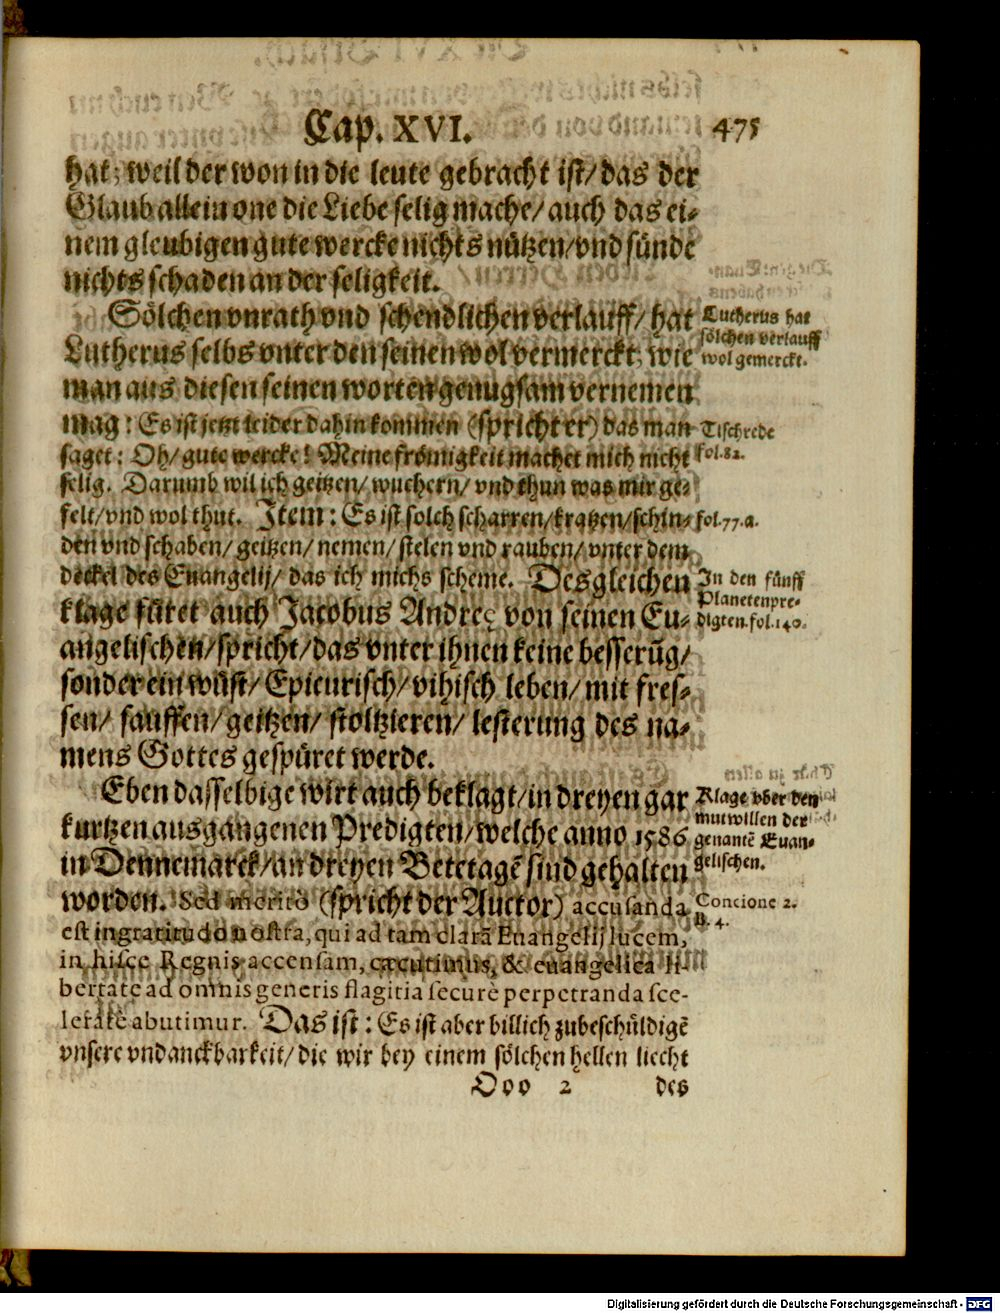 Cap. XVI.
475
hat, weil der won in die leute gebracht ist/ das der
Glaub allein one die Liebe selig mache/ auch das ei-
nem gleubigen gute wercke nichts nützen/ vnd sünde
nichts schaden an der seligkeit.
Sölchen vnrath vnd schendlichen verlauff/ hat
Lutherus selbs vnter den seinen wol vermerckt, wie
man aus diesen seinen worten genugsam vernemen
mag: Es ist jetzt leider dahin kommen (spricht er) das man
saget: Oh/ gute wercke! Meine frömigkeit machet mich nicht
selig. Darumb wil ich geitzen/ wuchern/ vnd thun was mir ge-
felt/ vnd wol thut. Item: Es ist solch scharren/ kratzen/ schin-
den vnd schaben/ geitzen/ nemen/ stelen vnd rauben/ vnter dem
deckel des Euangelij/ das ich michs scheme. Desgleichen
klage füret auch Jacobus Andreę von seinen Eu-
angelischen/ spricht/ das vnter ihnen keine besserūg/
sonder ein wüst/ Epicurisch/ vihisch leben/ mit fres-
sen/ sauffen/ geitzen/ stoltzieren/ lesterung des na-
mens Gottes gespüret werde.
Eben dasselbige wirt auch beklagt/ in dreyen gar
kurtzen ausgangenen Predigten/ welche anno 1586
in Dennemarck/ an dreyen Betetagē sind gehalten
worden. Sed meritò (spricht der Auctor) accusanda
est ingratitudo nostra, qui ad tam clarā Euangelij lucem,
in hisce Regnis accensam, cæcutimus, & euangelica li-
bertate ad omnis generis flagitia securè perpetranda sce-
leratè abutimur. Das ist: Es ist aber billich zubeschüldigē
vnsere vndanckbarkeit/ die wir bey einem sölchen hellen liecht
Ooo 2
des
Lutherus hat
sölchen verlauff
wol gemerckt.
Tischrede
fol.82.
fol.77.a.
In den fünff
Planetenpre-
digten. fol.140.
Klage vber den
mutwillen der
genantē Euan-
gelischen.
Concione 2.
B. 4.
Digitalisierung gefördert durch die Deutsche Forschungsgemeinschaft - DFG